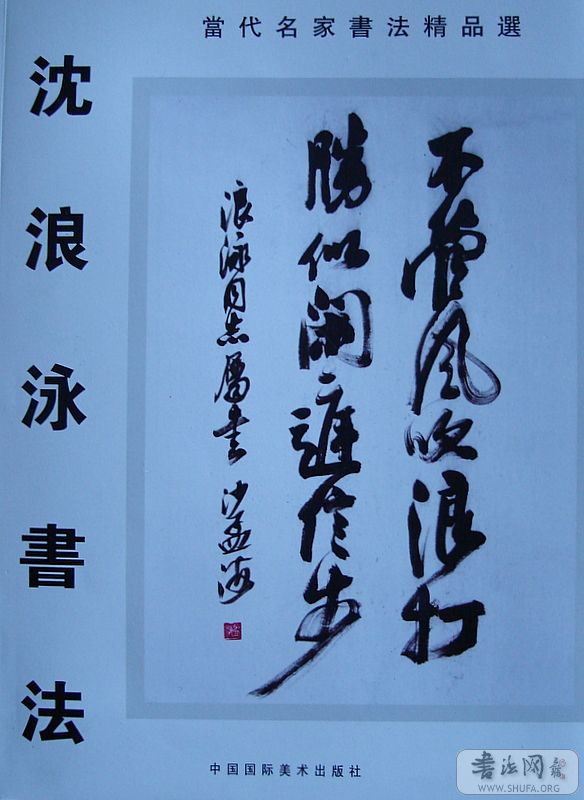 當代名家書法精品選
沈浪泳書法
不管風吹浪打
勝似閑庭信步
浪泳同志属書 沙孟海
中国国际美术出版社
书法网
WWW.SHUFA.ORG